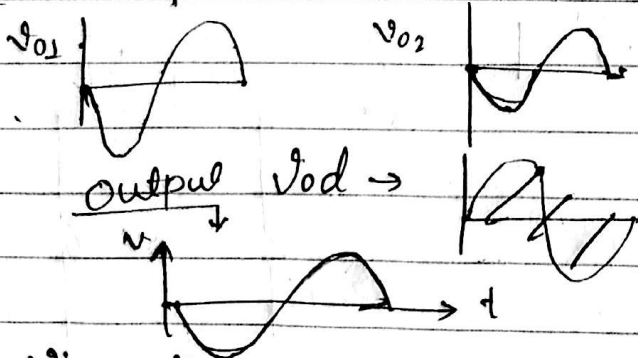 vO1 vO2
Output Vod →
v
t